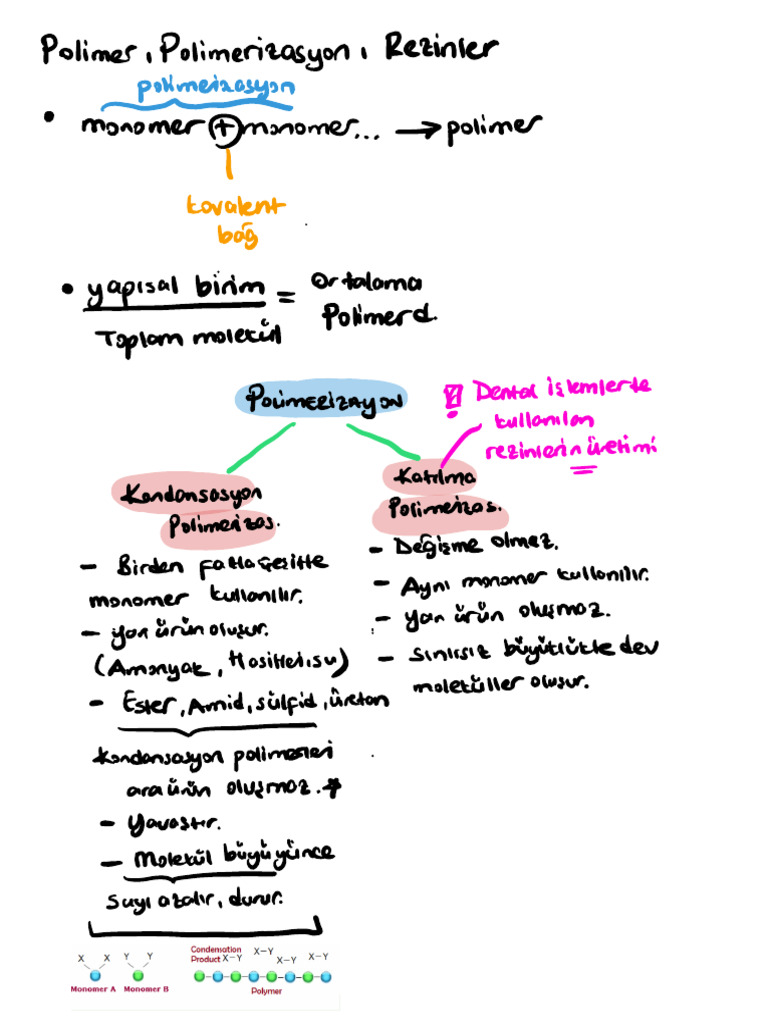 Polimer, Polimerizasyon, Rezinler
polimerizasyon
• monomer + monomer... → polimer
kovalent
bağ
• yapısal birim = Ortalama
Toplam molekül Polimer d.
Polimerizayon
Dental işlemlerte
kullanılan
rezinlerin üretimi
Kondansasyon
Polimerizas.
- Birden fazla çeşitte
monomer kullanılır.
- yan ürün oluşur.
(Amonyak, su)
- Ester, Amid, sülfid, üretan
Kondansasyon polimerleri
ara ürün oluşmaz. *
- Yavaştır.
- Molekül büyüyünce
sayı azalır, durur.
Katılma
Polimerizas.
- Değişme olmaz.
- Aynı monomer kullanılır.
- yan ürün oluşmaz.
- Sınırsız büyüklükte dev
moleküller oluşur.
X X Y Y
Monomer A Monomer B
Condensation
Product X-Y X-Y X-Y X-Y
Polymer